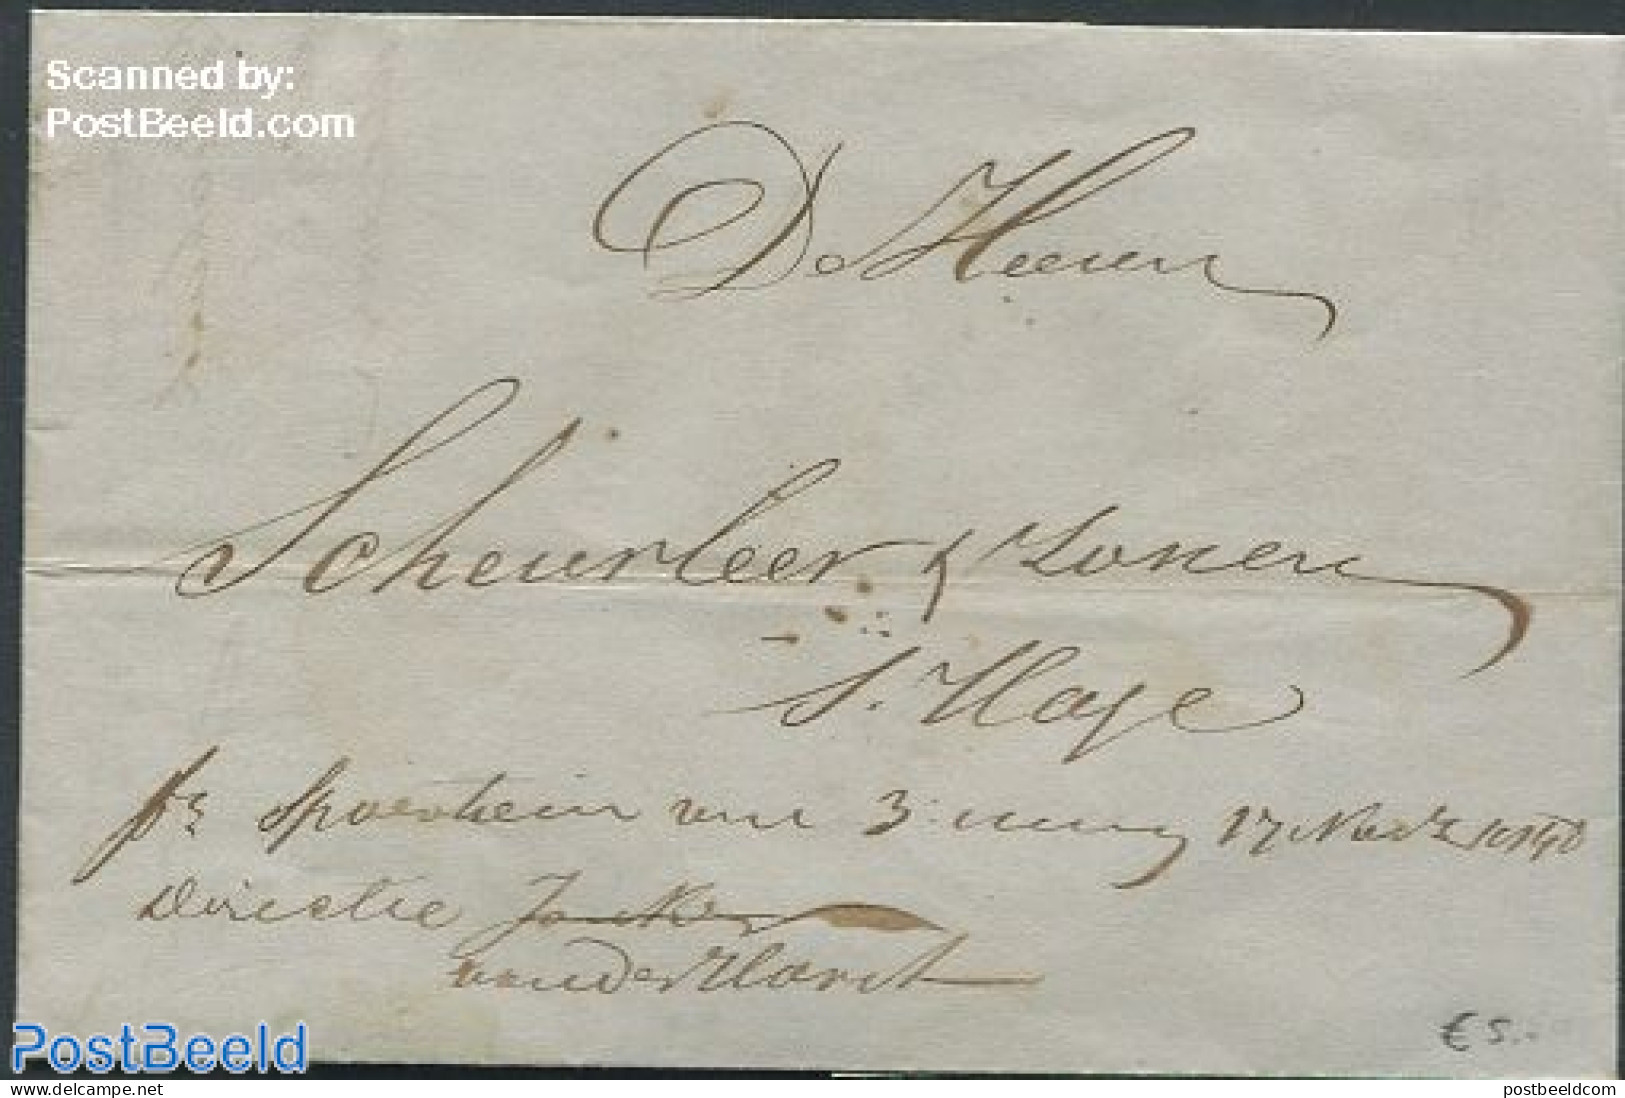 Scanned by:
PostBeeld.com
De Heeren
Scheurleer & Zonen
S. Hage
pr Spoortrein van 3 17 Novr 1848
Directie Jonker
van der Horst
€ 5.-
PostBeeld
delcampe.net
postbeeldcom